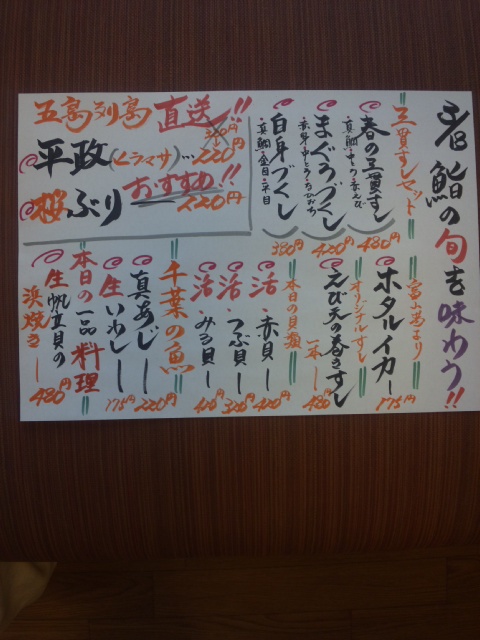 3/13 鮨の旬を味わう!!
三貫すしセット
春の三貫すし 480円
・真鯛・中とろ・赤えび
まぐろづくし 420円
白身づくし 380円
・真鯛・金目・平目
五島列島直送!!
平政(ヒラマサ)…220円
桜ぶり 220円
おすすめ!!
富山湾より
ホタルイカー 175円
オリジナルすし
えび天の巻きすし
一本ー 480円
本日の貝類
活・赤貝ー 420円
活・つぶ貝ー 320円
活・みる貝ー 420円
千葉の魚
真あじー 220円
生いわしー 175円
本日の一品料理
生帆立貝の
浜焼きー 480円